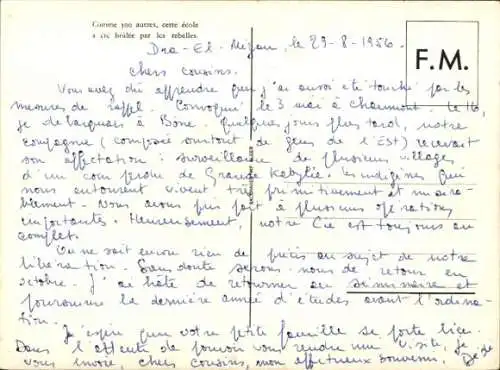 Comme 300 autres, cette école
a été brûlée par les rebelles.
F.M.
Dra-El-Mizan, le 29-8-1956.
Chers cousins.
Vous avez dû apprendre que j'ai aussi été touché par les
mesures de rappel. Convoqué le 3 mai à Chaumont. le 16,
je débarquais à Bône. Quelques jours plus tard, notre
compagnie (composée surtout de gens de l'Est) recevait
son affectation : surveillance de plusieurs villages
d'un coin de Grande Kabylie. les indigènes qui
nous entourent vivent très primitivement et miséra-
blement. Nous avons pris part à plusieurs opérations
importantes. Heureusement, notre Cie est toujours au
complet.
On ne sait encore rien de précis au sujet de notre
libération. Sans doute serons-nous de retour en
octobre. J'ai hâte de retourner au séminaire et
poursuivre la dernière année d'études avant l'ordina-
tion.
J'espère que votre petite famille se porte bien.
Dans l'attente de pouvoir vous rendre une visite, je
vous envoie, chers cousins, mon affectueux souvenir.